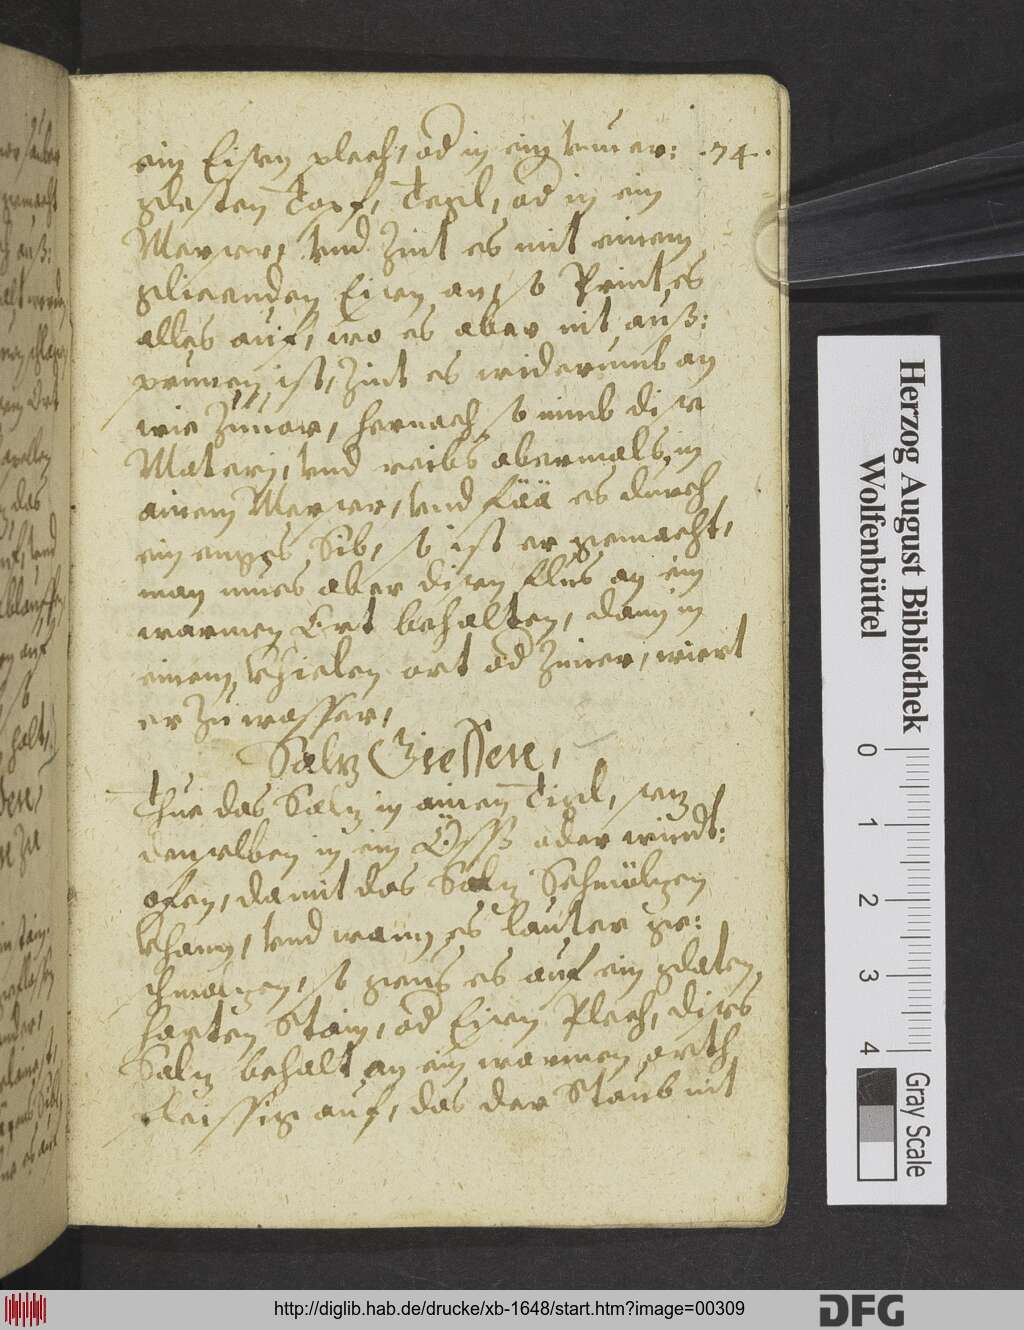 ein Eisen plech, od in ein unver: .74.
glesten Topf, Tegl, od in ein
Merser, und Zint es mit einem
glieenden Eisen an, so Print es
alles auf, wo es aber nit auß:
prunen ist, Zint es widerumb an
wie Zuuor, hernach so nimb dise
Materj, und reibs abermals in
ainem Merser, und fää es durch
ein enges Sib, so ist er gemacht,
man mues aber disen flus an ein
warmen Ort behalten, dann in
einem khielen ort od Zimer, wiert
er Zu wasser,
Saltz Giessen,
Thue das Saltz in ainen Tigl, setz
denselben in ein Öss oder windt:
ofen, damit das Saltz Schmöltzen
khann, und wann es lauter ge:
schmoltzen, so geus es auf ein glaten
harten Stain, od Eisen Plech, dises
Saltz behalt an ein warmen orth
fleissig auf, das der Staub nit
Herzog August Bibliothek
Wolfenbüttel
0 1 2 3 4
Gray Scale
http://diglib.hab.de/drucke/xb-1648/start.htm?image=00309
DFG